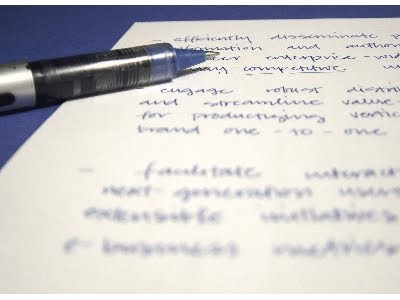 - efficiently disseminate p
information and author
enterprise-wid
competitive
engage robust distri
and streamline value-
for productizing vertic
brand one-to-one
- facilitate interact
next-generation users
extensible initiatives
e-business metrics